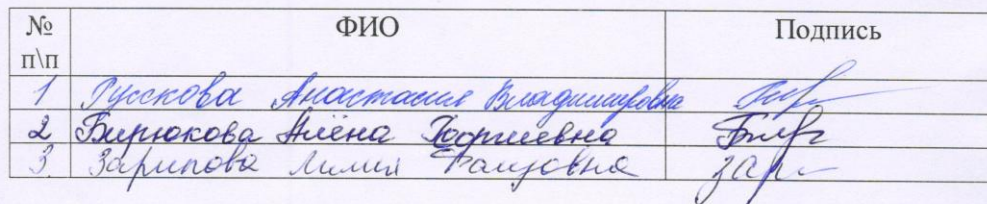 № п\п ФИО Подпись
1 Русскова Анастасия Владимировна
2 Бирюкова Алёна Юрьевна
3. Зарипова Лилия зар